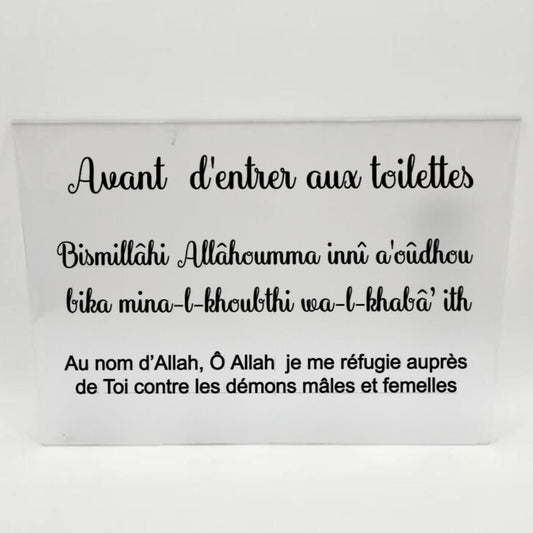 Avant d'entrer aux toilettes
Bismillâhi Allâhoumma innî a'oûdhou
bika mina-l-khoubthi wa-l-khabâ’ ith
Au nom d’Allah, Ô Allah je me réfugie auprès
de Toi contre les démons mâles et femelles